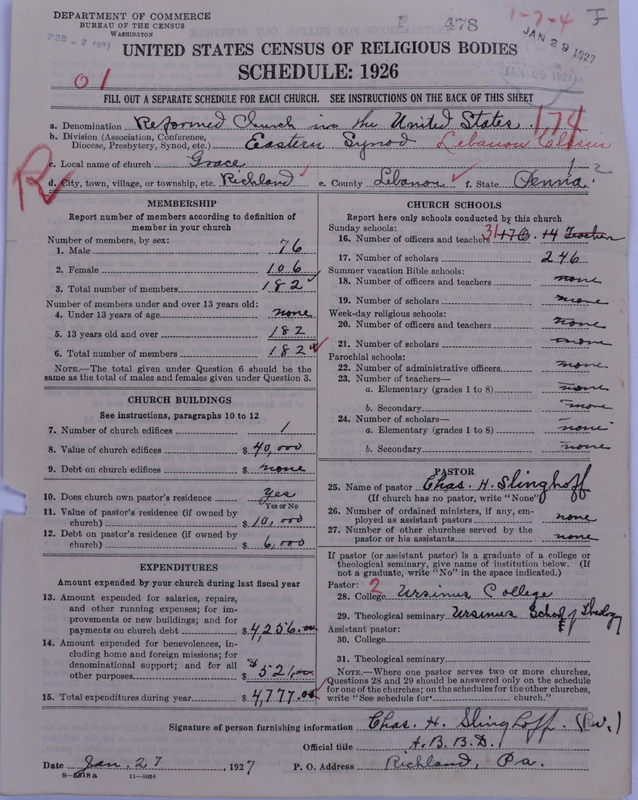 DEPARTMENT OF COMMERCE
BUREAU OF THE CENSUS
WASHINGTON
178
1-7-4
JAN 29 1927
UNITED STATES CENSUS OF RELIGIOUS BODIES
SCHEDULE: 1926
01
FILL OUT A SEPARATE SCHEDULE FOR EACH CHURCH. SEE INSTRUCTIONS ON THE BACK OF THIS SHEET
a. Denomination Reformed Church in the United States 174
b. Division (Association, Conference, Diocese, Presbytery, Synod, etc.) Eastern Synod Lebanon Classis
c. Local name of church Grace 1-2
R
d. City, town, village, or township, etc. Richland e. County Lebanon f. State Penna.
MEMBERSHIP
Report number of members according to definition of
member in your church
Number of members, by sex:
1. Male 76
2. Female 106
3. Total number of members 182
Number of members under and over 13 years old:
4. Under 13 years of age none
5. 13 years old and over 182
6. Total number of members 182
NOTE.—The total given under Question 6 should be the
same as the total of males and females given under Question 3.
CHURCH BUILDINGS
See instructions, paragraphs 10 to 12
7. Number of church edifices 1
8. Value of church edifices $ 40,000
9. Debt on church edifices $ none
10. Does church own pastor's residence Yes
Yes or No
11. Value of pastor's residence (if owned by
church) $ 10,000
12. Debt on pastor's residence (if owned by
church) $ 6,000
EXPENDITURES
Amount expended by your church during last fiscal year
13. Amount expended for salaries, repairs,
and other running expenses; for im-
provements or new buildings; and for
payments on church debt $ 4,256.00
14. Amount expended for benevolences, in-
cluding home and foreign missions; for
denominational support; and for all
other purposes $ 521.00
15. Total expenditures during year $ 4,777.00
CHURCH SCHOOLS
Report here only schools conducted by this church
Sunday schools:
16. Number of officers and teachers 31 17 O. 14 Teachers
17. Number of scholars 246
Summer vacation Bible schools:
18. Number of officers and teachers none
19. Number of scholars none
Week-day religious schools:
20. Number of officers and teachers none
21. Number of scholars none
Parochial schools:
22. Number of administrative officers none
23. Number of teachers—
a. Elementary (grades 1 to 8) none
b. Secondary none
24. Number of scholars—
a. Elementary (grades 1 to 8) none
b. Secondary none
PASTOR
25. Name of pastor Chas. H. Slinghoff
(If church has no pastor, write "None")
26. Number of ordained ministers, if any, em-
ployed as assistant pastors none
27. Number of other churches served by the
pastor or his assistants none
If pastor (or assistant pastor) is a graduate of a college or
theological seminary, give name of institution below. (If
not a graduate, write "No" in the space indicated.)
Pastor: 2
28. College Ursinus College
29. Theological seminary Ursinus School of Theology
Assistant pastor:
30. College
31. Theological seminary
NOTE.—Where one pastor serves two or more churches,
Questions 28 and 29 should be answered only on the schedule
for one of the churches; on the schedules for the other churches,
write "See schedule for church."
Signature of person furnishing information Chas. H. Slinghoff. (Rev.)
Official title A. B. B. D.
Date Jan. 27, 1927 P. O. Address Richland, Pa.
11—9064